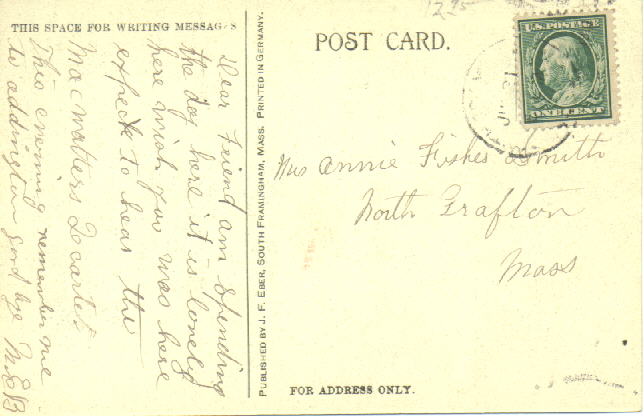 THIS SPACE FOR WRITING MESSAGES
POST CARD.
U.S. POSTAGE
ONE CENT
Dear Friend am spending
the day here it is lonely
here wish you was here
expects to hear the
Macwatters Quartet
This evening remember me
to addington good bye M.E.B
PUBLISHED BY J. F. EBER, SOUTH FRAMINGHAM, MASS. PRINTED IN GERMANY.
Mrs Annie Fisher Smith
North Grafton
Mass
FOR ADDRESS ONLY.